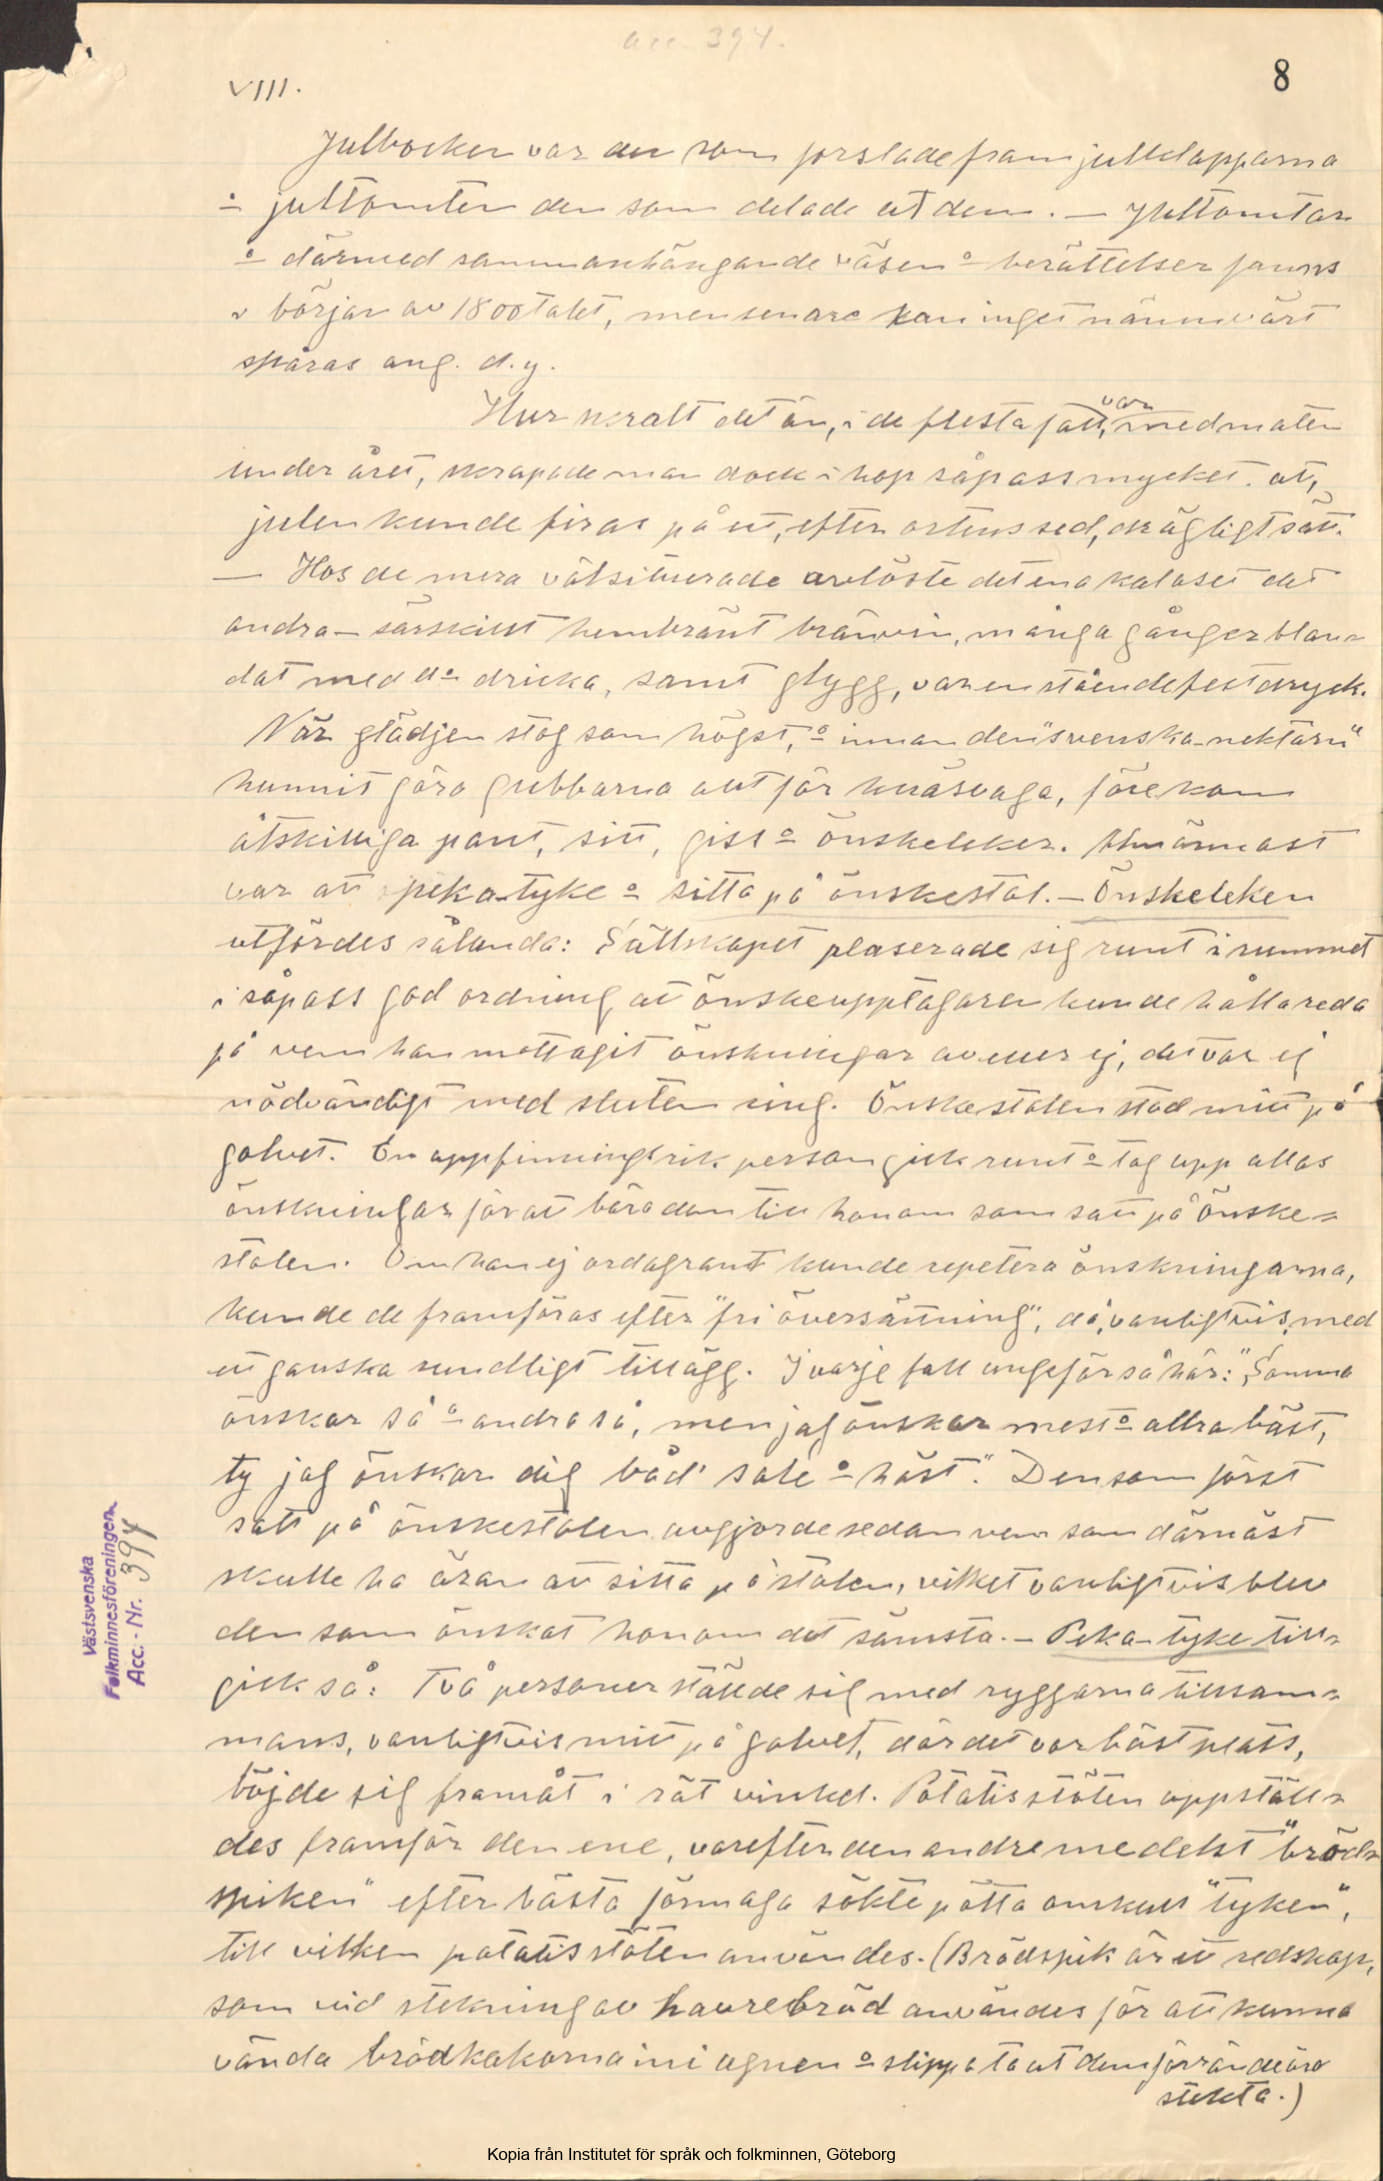 Acc. 394.
8
VIII.
Julbocken var den som forslade fram julklapparna
o jultomten den som delade ut dem. — Jultomtar
o därmed sammanhängande väsen o berättelser fanns
i början av 1800talet, men senare kan inget nämnvärt
spåras ang. d.y.
Hur skralt det än, i de flesta fall, var med maten
under året, skrapade man dock ihop såpass mycket att,
julen kunde firas på ett, efter ortens sed, drägligt sätt.
— Hos de mera välsituerade avlöste det ena kalaset det
andra — särskilt hembränt brännvin, många gånger blan-
dat med do dricka, samt glygg, var en stående festdryck.
När glädjen stog som högst, o innan den "svenska-nektarn"
hunnit göra gubbarna allt för knäsvaga, förekom
åtskilliga pant, sitt, giss o önskelekar. Allmännast
var att peka-tyke o sitta på önskestol. — Önskeleken
utfördes sålunda: Sällskapet plaserade sig runt i rummet
i såpass god ordning att önskeupptagaren kunde hålla reda
på vem han mottagit önskningar av eller ej, det var ej
nödvändigt med sluten ring. Önskestolen stod mitt på
golvet. En uppfinningsrik person gick runt o tog upp allas
önskningar för att bära dem till honom som satt på önske-
stolen. Om han ej ordagrant kunde repetera önskningarna,
kunde de framföras efter "fri översättning", då, vanligtvis, med
ett ganska rundligt tillägg. I varje fall ungefär så här: "Somma
önskar så o andra så, men jag önskar mest o allra bäst,
ty jag önskar dig båd' sale o häst". Den som först
satt på önskestolen avgjorde sedan vem som därnäst
skulle ha äran att sitta på stolen, vilket vanligtvis blev
den som önskat honom det sämsta. — Peka-tyke till-
gick så: Två personer ställde sig med ryggarna tillsam-
mans, vanligtvis mitt på golvet, där det var bäst plats,
böjde sig framåt i rät vinkel. Potatisstöten uppställ-
des framför den ene, varefter den andre medelst "bröd-
spiken" efter bästa förmåga sökte påtta omkull "tyken",
till vilken potatisstöten användes. (Brödspik är ett redskap,
som vid stekning av havrebröd användes för att kunna
vända brödkakorna in i ugnen o slippa ta ut dem förrän de äro
stekta.)
Västsvenska
Folkminnesföreningen
Acc. - Nr. 394
Kopia från Institutet för språk och folkminnen, Göteborg